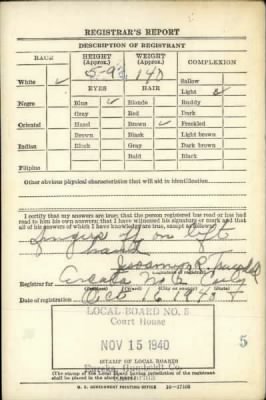 REGISTRAR'S REPORT
DESCRIPTION OF REGISTRANT
RACE HEIGHT (Approx.) WEIGHT (Approx.) COMPLEXION
5-9½ 140
White ✓ Sallow
EYES HAIR Light ✓
Negro Blue ✓ Blonde Ruddy
Gray Red Dark
Oriental Hazel Brown ✓ Freckled
Brown Black Light brown
Indian Black Gray Dark brown
Bald Black
Filipino
Other obvious physical characteristics that will aid in identification
I certify that my answers are true; that the person registered has read or has had read to him his own answers; that I have witnessed his signature or mark and that all of his answers of which I have knowledge are true, except as follows:
fingers off on left
hand
(Signature of registrar)
Registrar for Arcata
(City or county)
Date of registration Oct 16 1940
LOCAL BOARD NO. 5
Court House
NOV 15 1940 5
STAMP OF LOCAL BOARD
Eureka Humboldt Co
(The stamp of the Local Board having jurisdiction of the registrant shall be placed in the above space.)
U. S. GOVERNMENT PRINTING OFFICE 16—17105